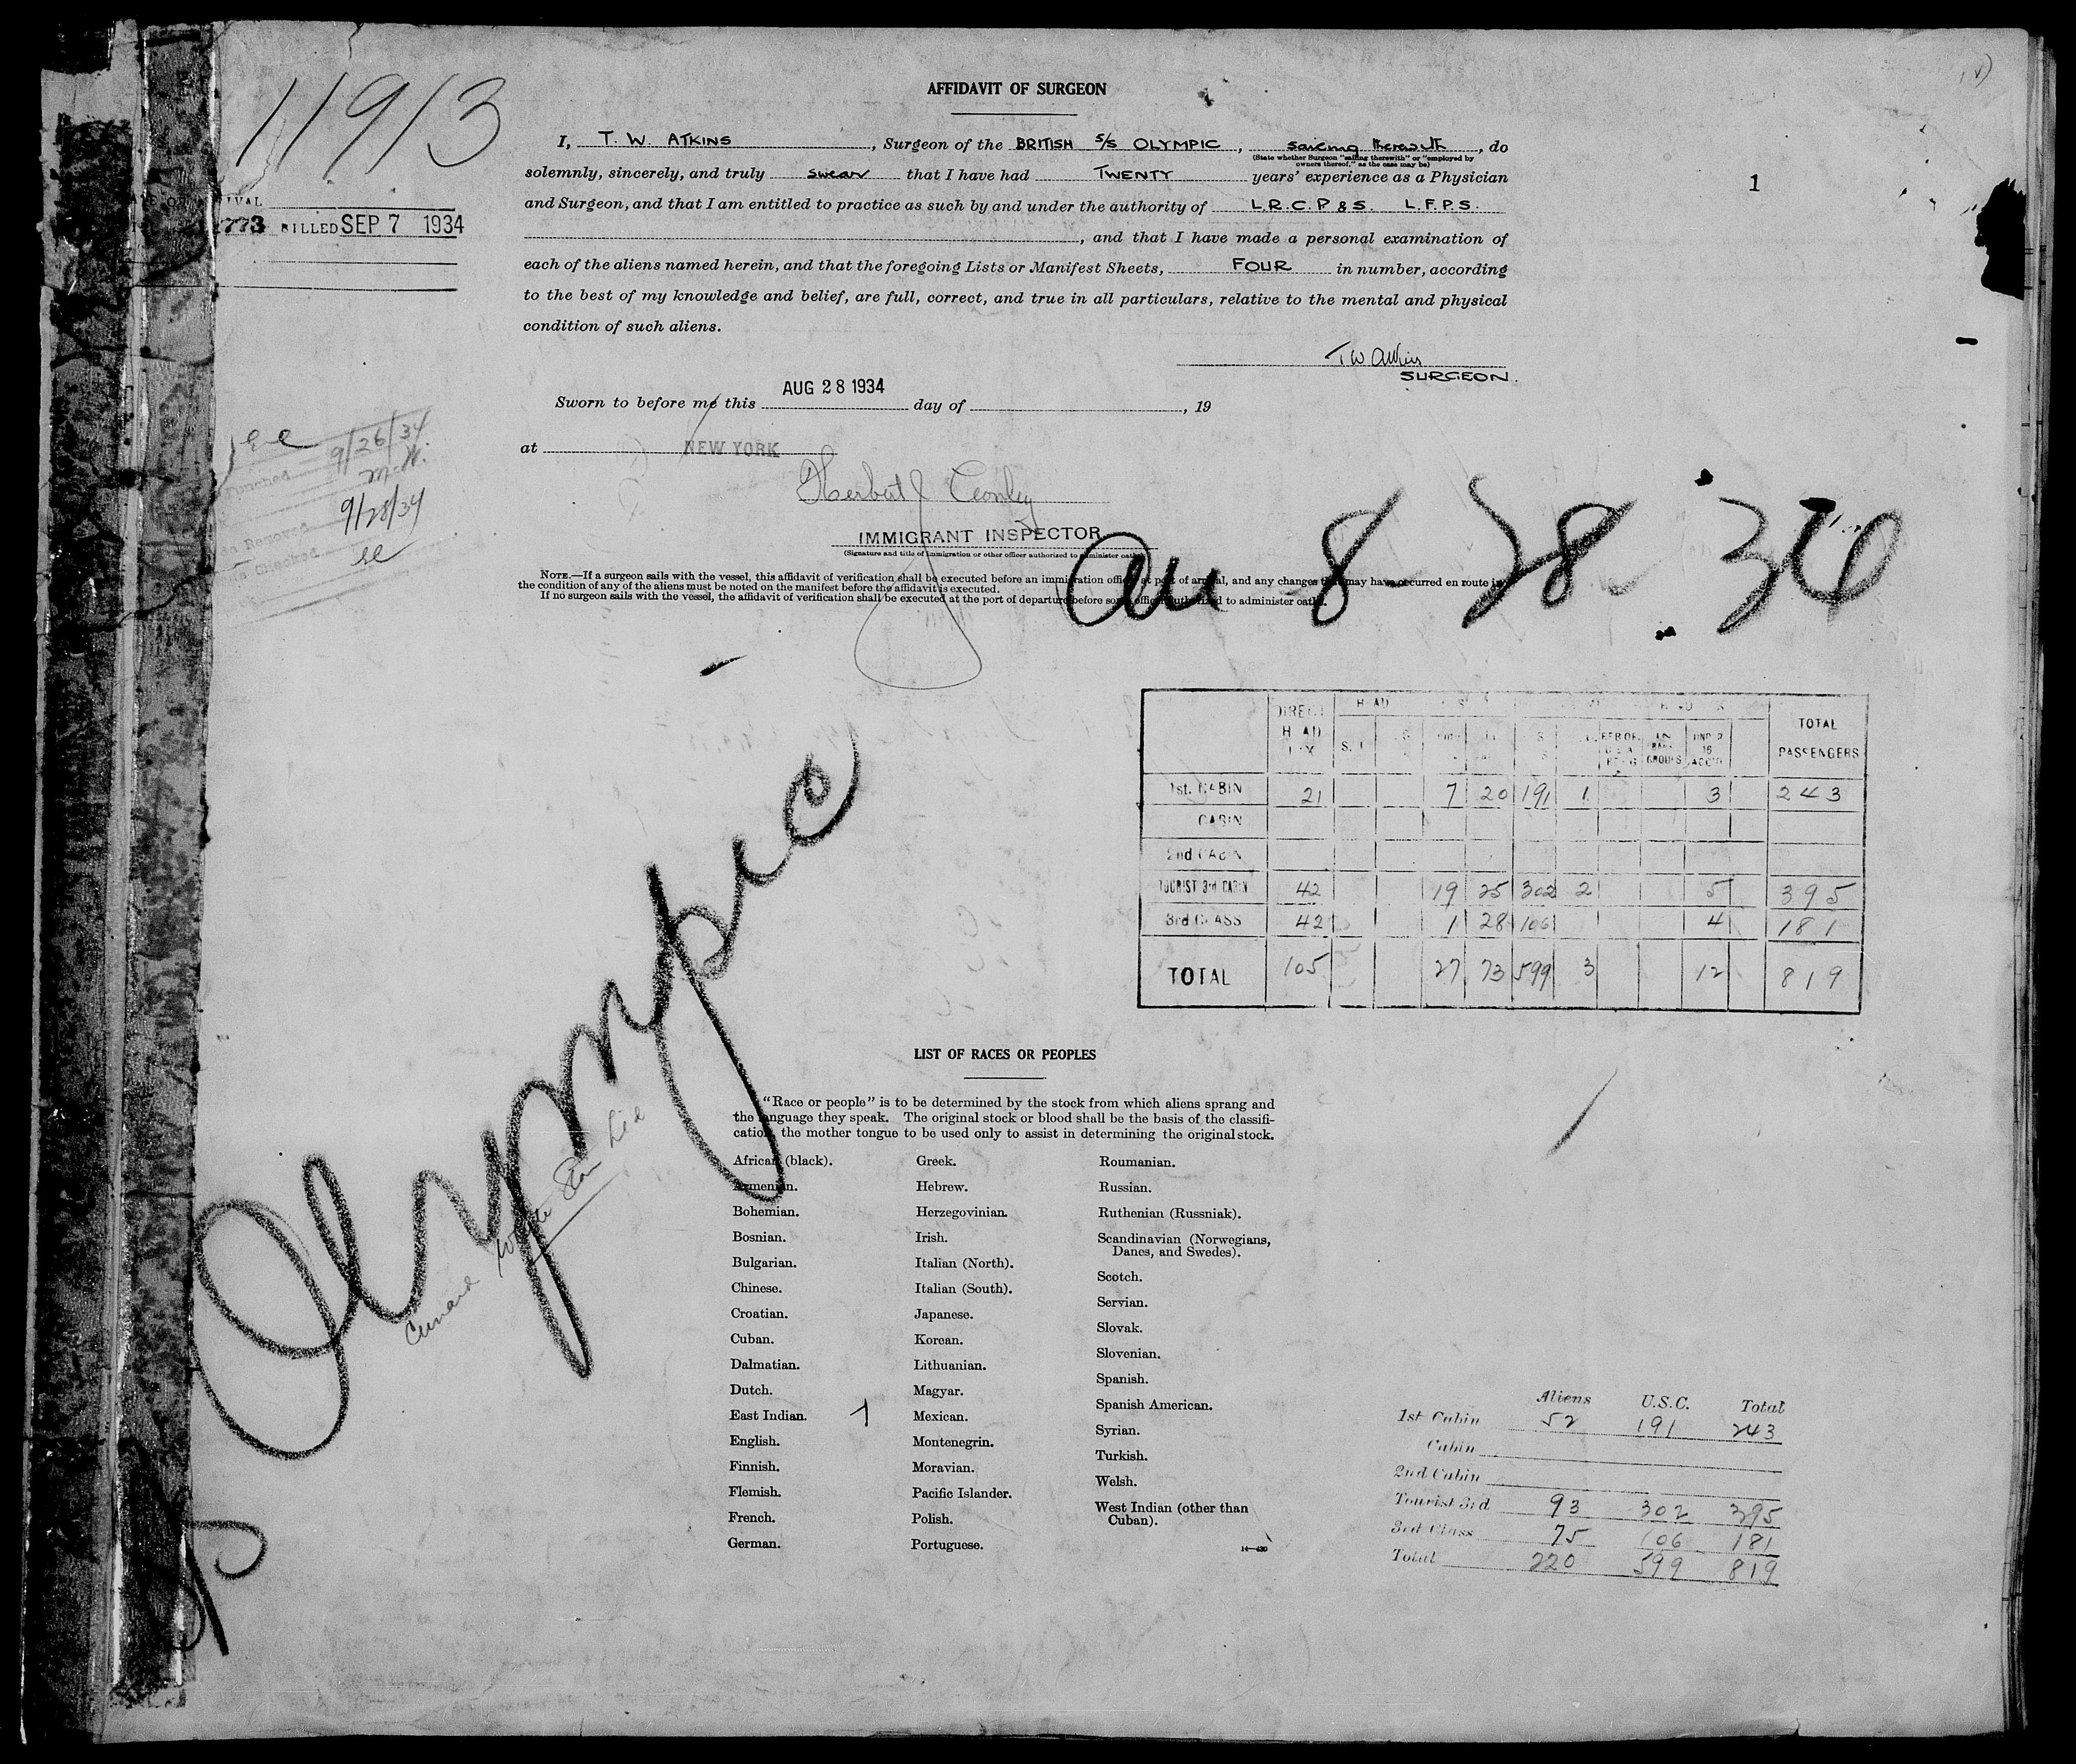 11913
AFFIDAVIT OF SURGEON
I, T. W. ATKINS, Surgeon of the BRITISH S/S OLYMPIC, sailing therewith, do
(State whether Surgeon "sailing therewith" or "employed by
owners thereof," as the case may be)
solemnly, sincerely, and truly swear that I have had TWENTY years' experience as a Physician
1
and Surgeon, and that I am entitled to practice as such by and under the authority of L.R.C.P & S. L.F.P.S.
773 BILLED SEP 7 1934
, and that I have made a personal examination of
each of the aliens named herein, and that the foregoing Lists or Manifest Sheets, FOUR in number, according
to the best of my knowledge and belief, are full, correct, and true in all particulars, relative to the mental and physical
condition of such aliens.
T W Atkins
SURGEON.
AUG 28 1934
Sworn to before me this day of , 19
at NEW YORK
9/26/34
Punched
M.W.
9/28/34
Removed
Checked
Herbert
IMMIGRANT INSPECTOR
(Signature and title of immigration or other officer authorized to administer oaths)
8-28-34
NOTE.—If a surgeon sails with the vessel, this affidavit of verification shall be executed before an immigration officer at port of arrival, and any changes that may have occurred en route in
the condition of any of the aliens must be noted on the manifest before the affidavit is executed.
If no surgeon sails with the vessel, the affidavit of verification shall be executed at the port of departure before some officer authorized to administer oaths.
DIRECT HEAD TAX
UNDER 16 ACC'D
TOTAL PASSENGERS
1st. CABIN 21 7 20 191 1 3 243
CABIN
2nd CABIN
TOURIST 3rd CABIN 42 19 25 302 2 5 395
3rd CLASS 42 1 28 106 4 181
TOTAL 105 27 73 599 3 12 819
Olympic
Cunard White Star Ltd
LIST OF RACES OR PEOPLES
"Race or people" is to be determined by the stock from which aliens sprang and
the language they speak. The original stock or blood shall be the basis of the classifi-
cation, the mother tongue to be used only to assist in determining the original stock.
African (black).
Armenian.
Bohemian.
Bosnian.
Bulgarian.
Chinese.
Croatian.
Cuban.
Dalmatian.
Dutch.
East Indian. 1
English.
Finnish.
Flemish.
French.
German.
Greek.
Hebrew.
Herzegovinian.
Irish.
Italian (North).
Italian (South).
Japanese.
Korean.
Lithuanian.
Magyar.
Mexican.
Montenegrin.
Moravian.
Pacific Islander.
Polish.
Portuguese.
Roumanian.
Russian.
Ruthenian (Russniak).
Scandinavian (Norwegians,
Danes, and Swedes).
Scotch.
Servian.
Slovak.
Slovenian.
Spanish.
Spanish American.
Syrian.
Turkish.
Welsh.
West Indian (other than
Cuban).
Aliens U.S.C. Total
1st Cabin 52 191 243
Cabin
2nd Cabin
Tourist 3rd 93 302 395
3rd Class 75 106 181
Total 220 599 819